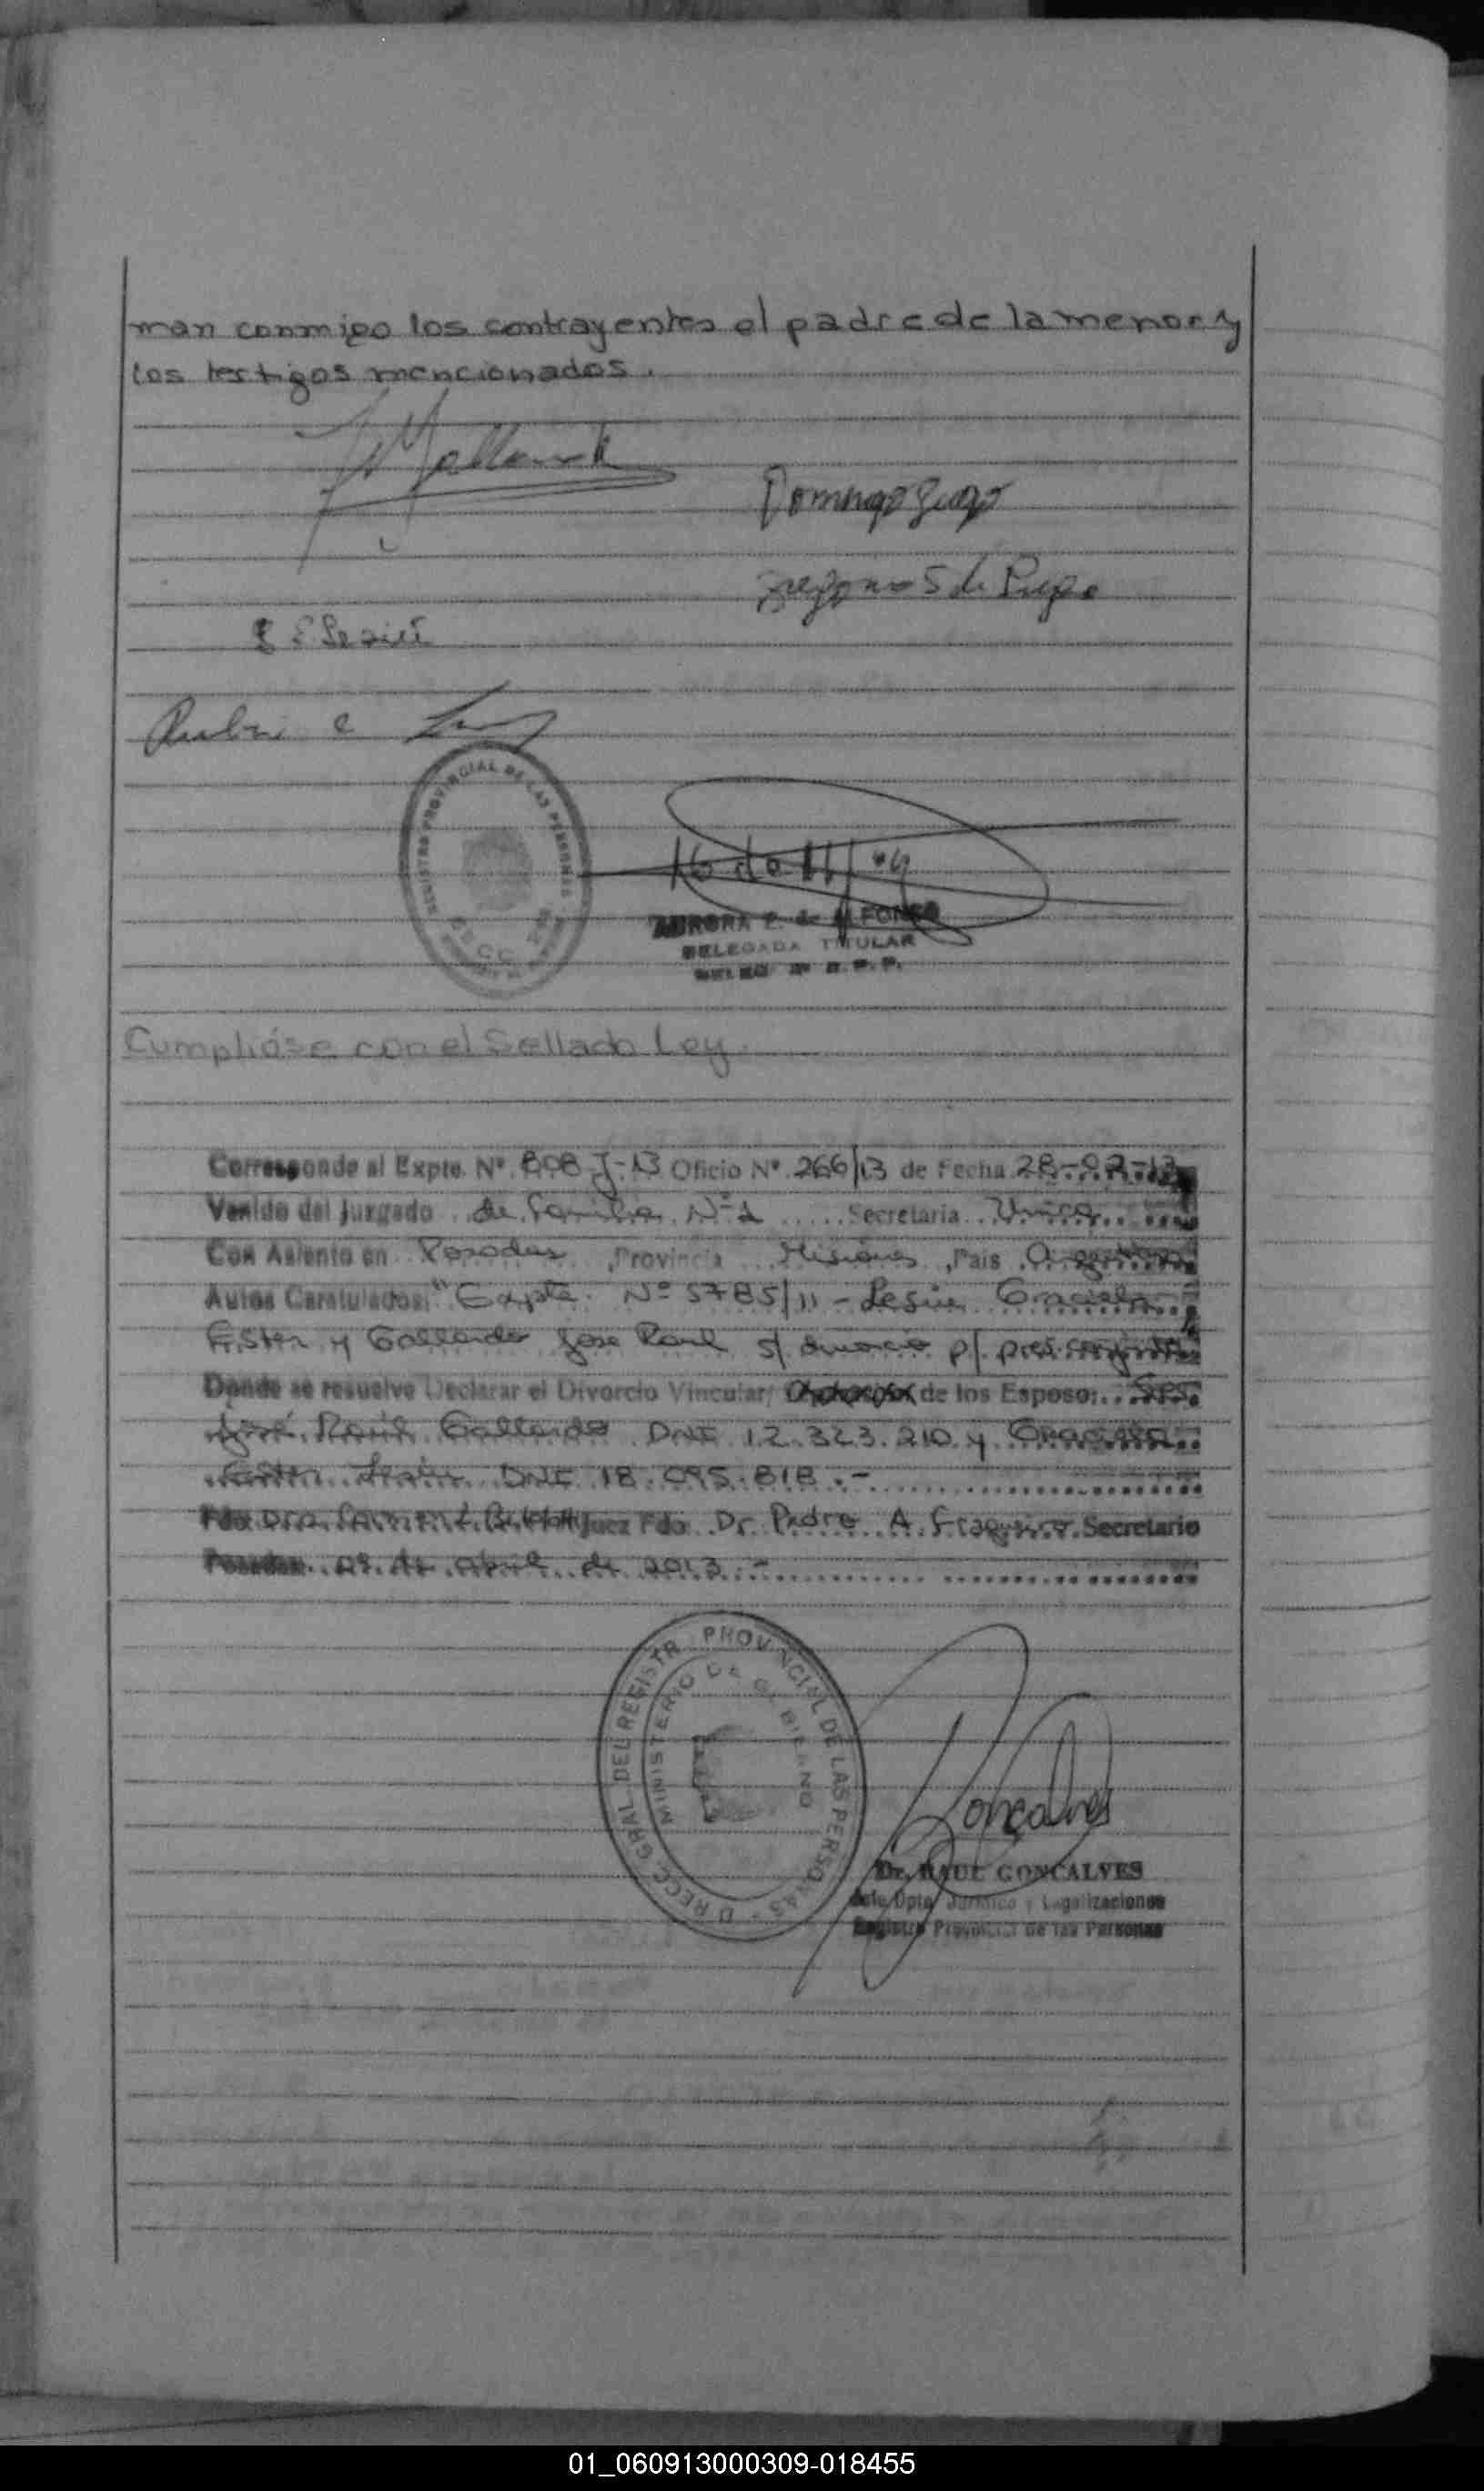 man conmigo los contrayentes el padre de la menor y
los testigos mencionados.
Gallardo
Domingo
S de
Ruben
REGISTRO PROVINCIAL DE LAS PERSONAS
AURORA E. de ALFONSO
DELEGADA TITULAR
Cumplióse con el Sellado Ley.
Corresponde al Expte. Nº 808-J-13 Oficio Nº 266/13 de Fecha 28-02-13
Venido del Juzgado de Familia Nº 1 Secretaria Unica
Con Asiento en Posadas, Provincia Misiones, Pais Argentina
Autos Caratulados: "Expte. Nº 5785/11 - Graciela
Ester y Gallardo Jose Raul s/ divorcio p/ pres. conjunta
Donde se resuelve Declarar el Divorcio Vincular/ de los Esposo: Sres.
José Raúl Gallardo DNI 12.323.210 y Graciela
Ester DNI 18.095.818.-
Fdo Dra. Juez Fdo. Dr. Pedro A. Secretario
Posadas. 09 de abril de 2013.-
DIRECC. GRAL. DEL REGISTRO PROVINCIAL DE LAS PERSONAS
MINISTERIO DE GOBIERNO
Goncalves
Dr. RAUL GONCALVES
Jefe Dpto. Jurídico y Legalizaciones
Registro Provincial de las Personas
01_060913000309-018455